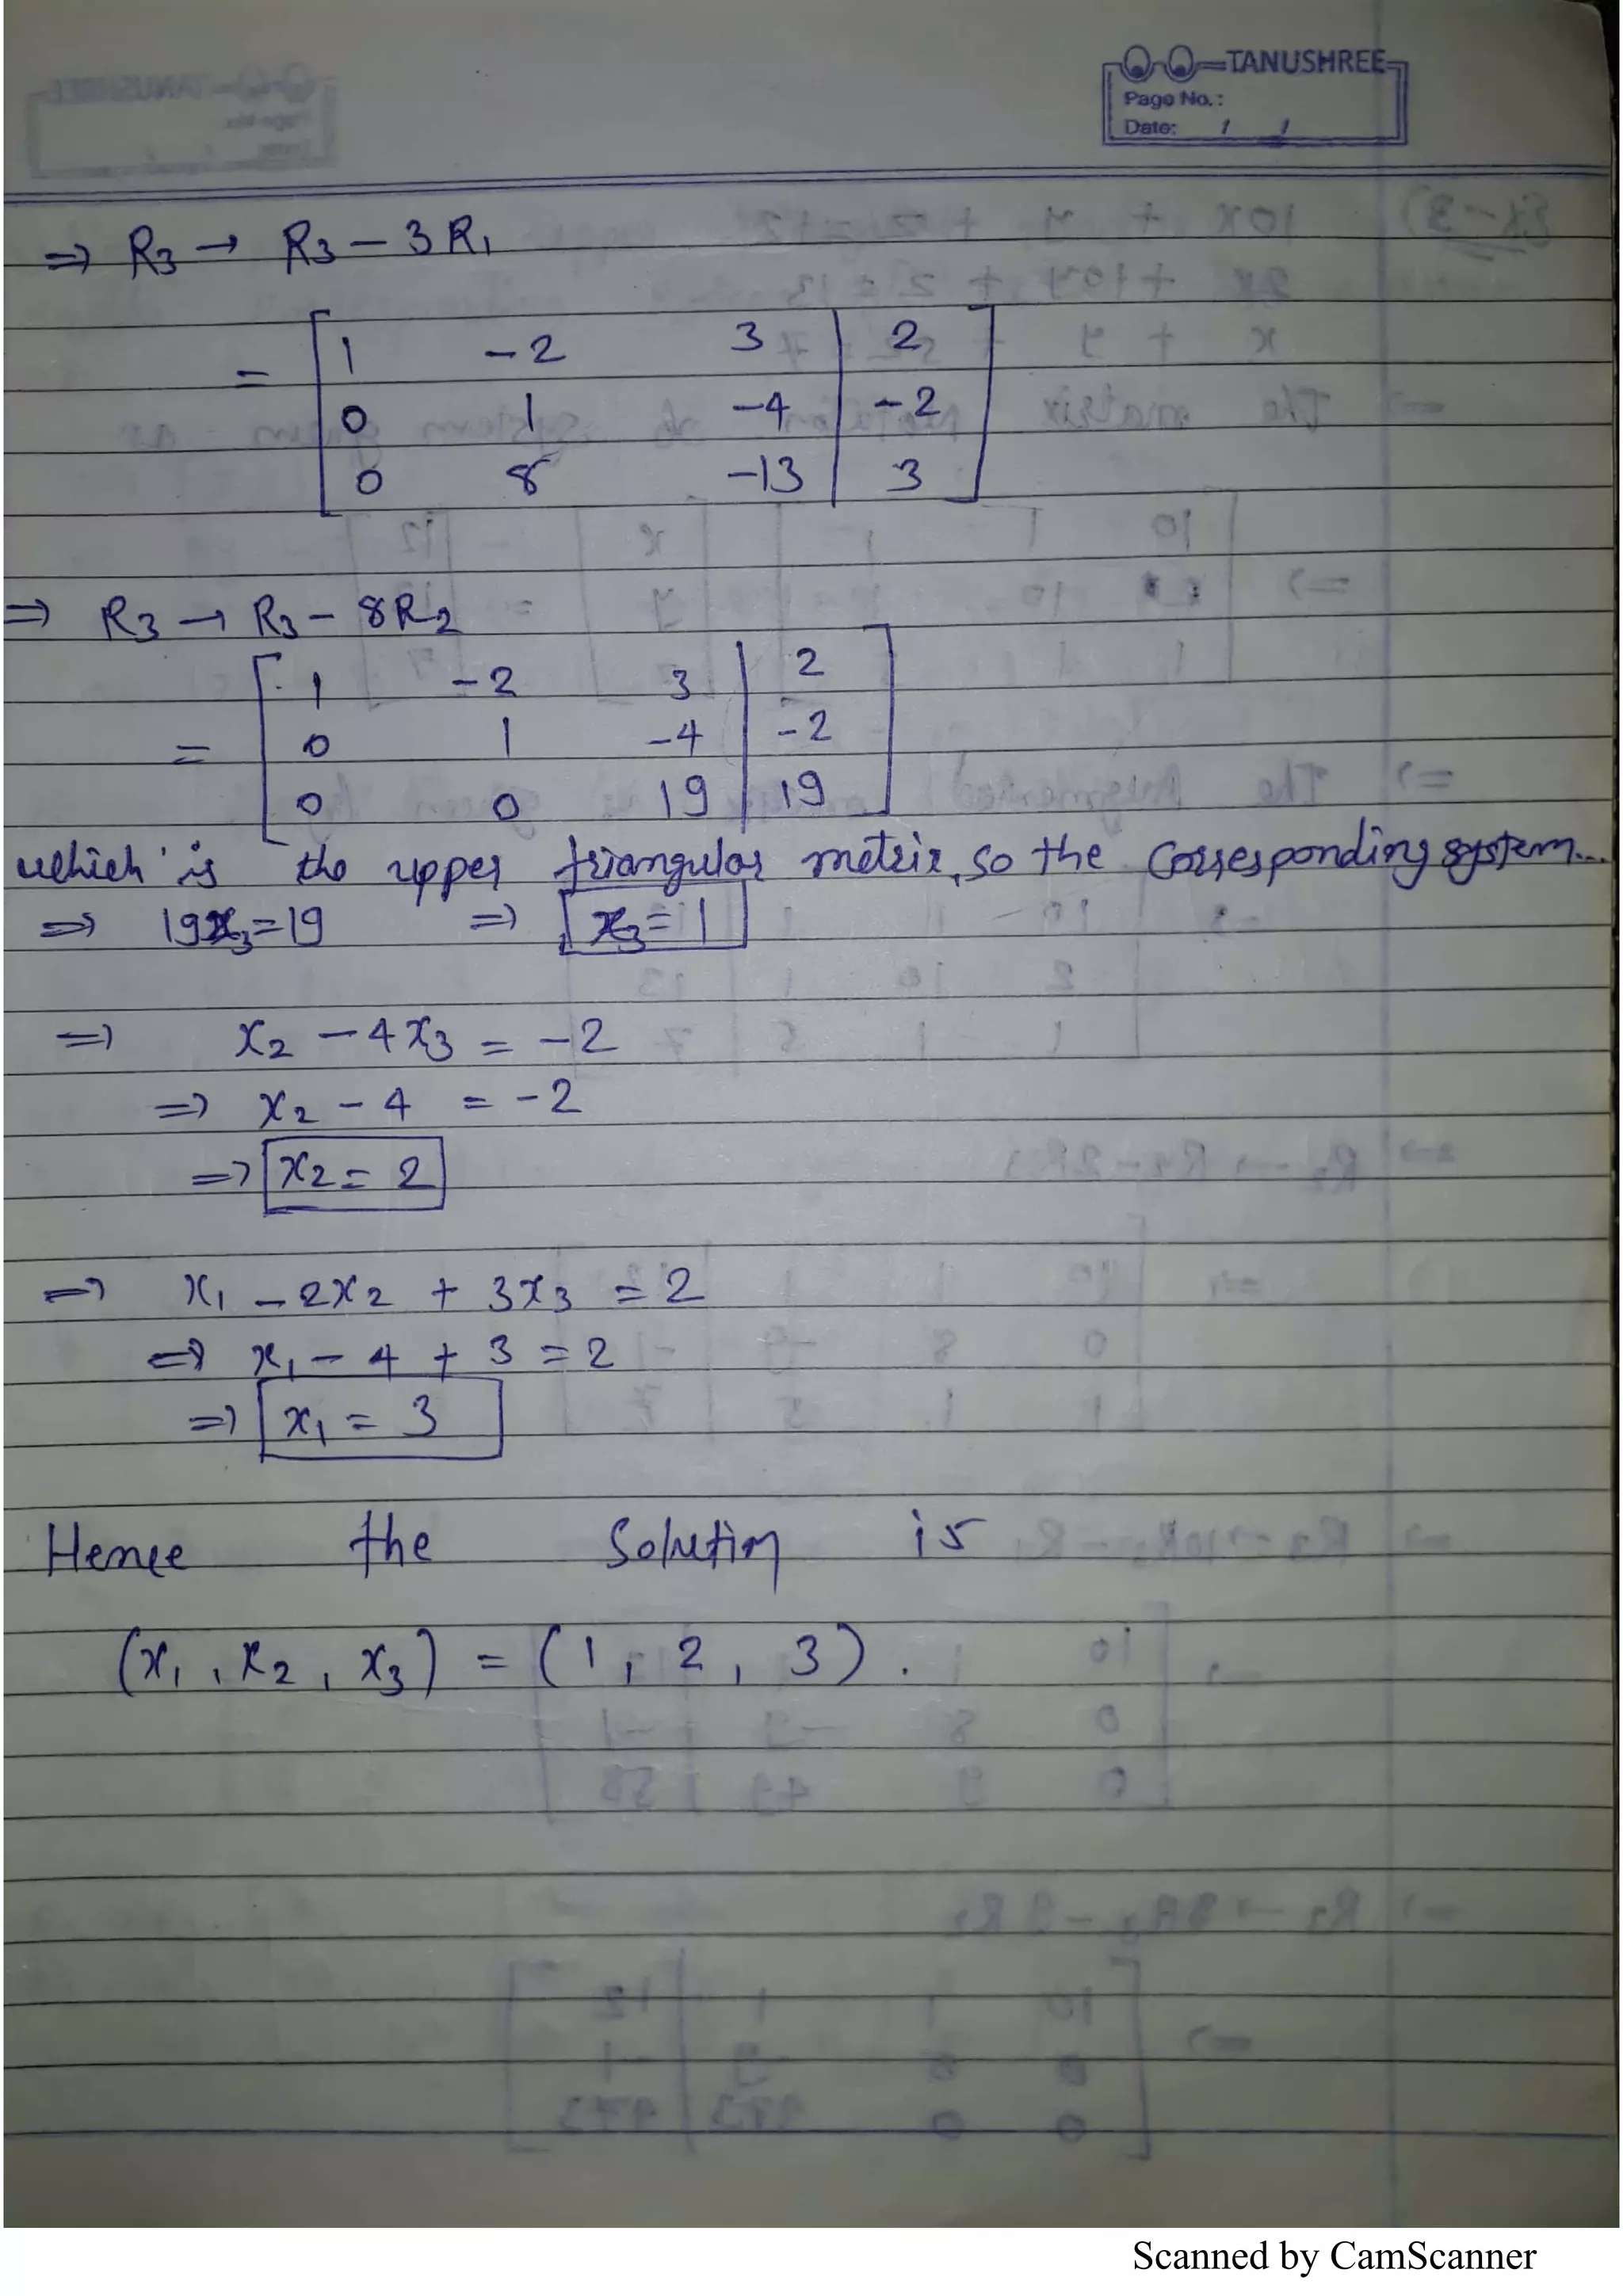 TANUSHREE
Page No.:
Date: / /
⇒ R3 → R3 − 3R1
= [ 1 −2 3 | 2 ]
0 1 −4 | −2
0 8 −13 | 3
⇒ R3 → R3 − 8R2
= [ 1 −2 3 | 2 ]
0 1 −4 | −2
0 0 19 | 19
which is the upper triangular metrix, so the corresponding system...
⇒ 19x3 = 19 ⇒ x3 = 1
⇒ x2 − 4x3 = −2
⇒ x2 − 4 = −2
⇒ x2 = 2
⇒ x1 − 2x2 + 3x3 = 2
⇒ x1 − 4 + 3 = 2
⇒ x1 = 3
Hence the solution is
(x1, x2, x3) = (1, 2, 3).
Scanned by CamScanner